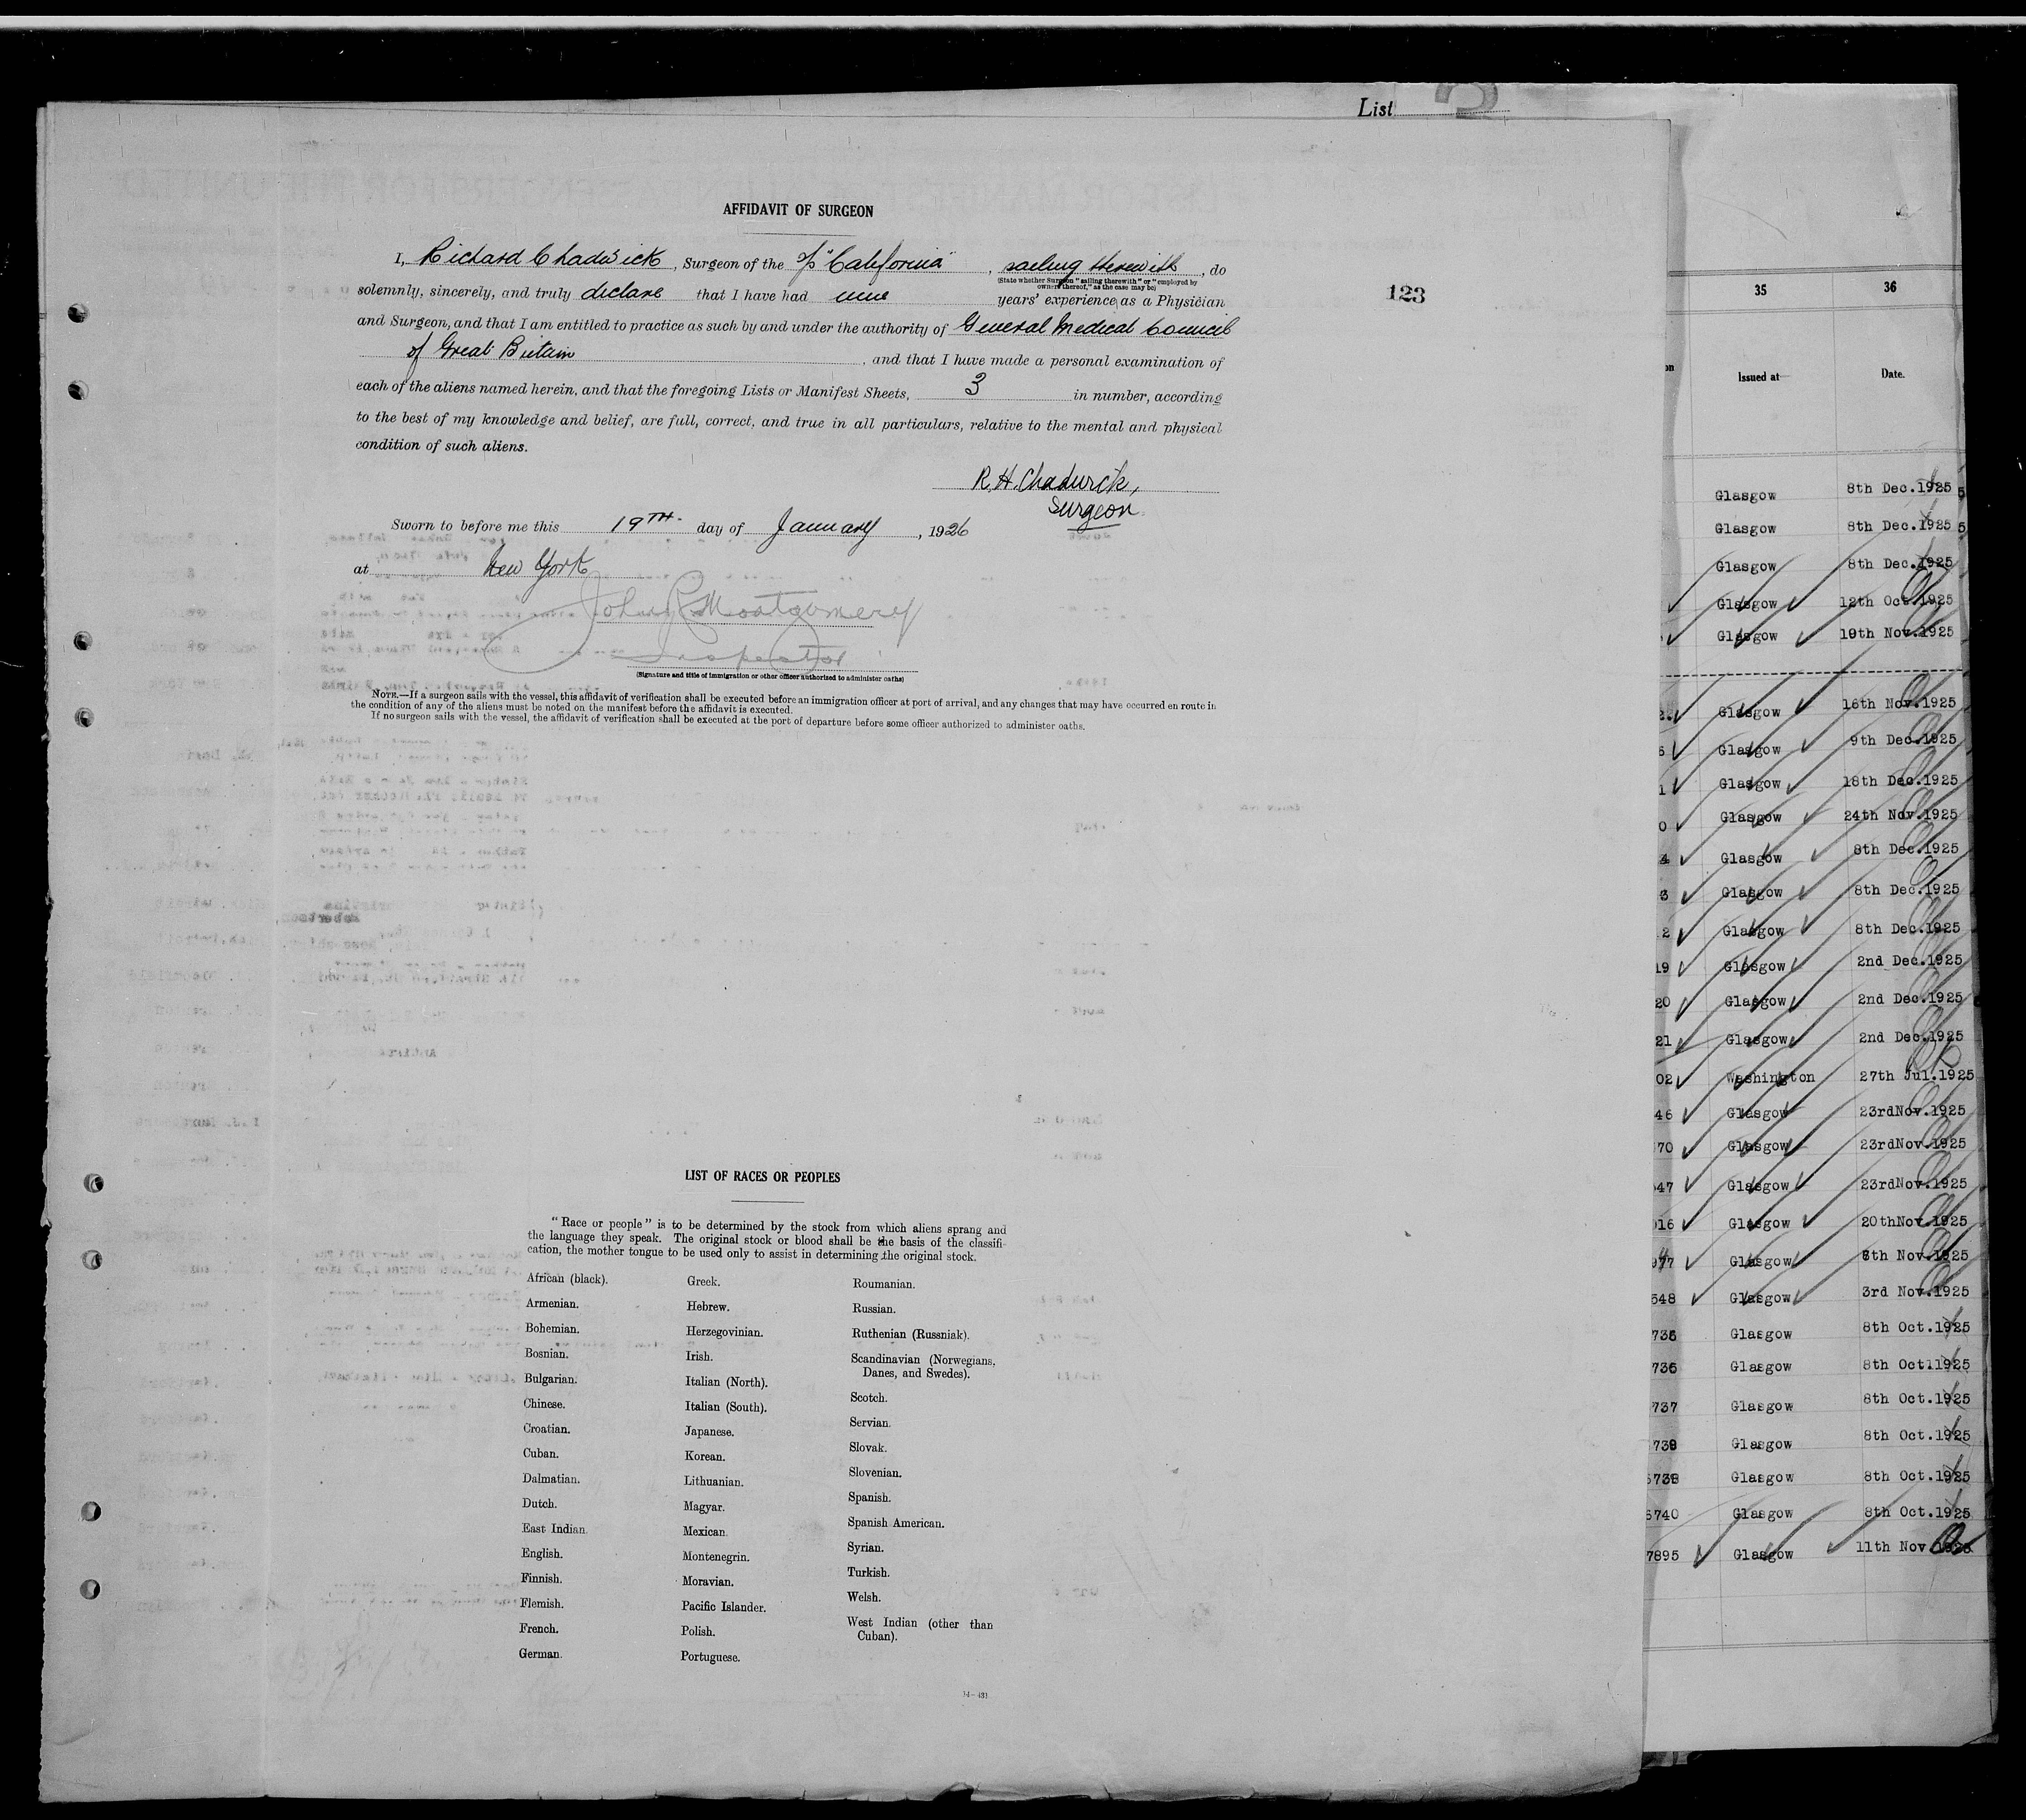 List
AFFIDAVIT OF SURGEON
I, Richard Chadwick, Surgeon of the s/s "California", sailing therewith, do
(State whether Surgeon "sailing therewith" or "employed by
owners thereof," as the case may be)
solemnly, sincerely, and truly declare that I have had nine years' experience as a Physician
and Surgeon, and that I am entitled to practice as such by and under the authority of General Medical Council
of Great Britain, and that I have made a personal examination of
each of the aliens named herein, and that the foregoing Lists or Manifest Sheets, 3 in number, according
to the best of my knowledge and belief, are full, correct, and true in all particulars, relative to the mental and physical
condition of such aliens.
R.H. Chadwick,
Surgeon
Sworn to before me this 19TH. day of January, 1926
at New York
John R Montgomery
Inspector
(Signature and title of immigration or other officer authorized to administer oaths)
NOTE.—If a surgeon sails with the vessel, this affidavit of verification shall be executed before an immigration officer at port of arrival, and any changes that may have occurred en route in
the condition of any of the aliens must be noted on the manifest before the affidavit is executed.
If no surgeon sails with the vessel, the affidavit of verification shall be executed at the port of departure before some officer authorized to administer oaths.
123
LIST OF RACES OR PEOPLES
"Race or people" is to be determined by the stock from which aliens sprang and
the language they speak. The original stock or blood shall be the basis of the classifi-
cation, the mother tongue to be used only to assist in determining the original stock.
African (black).
Armenian.
Bohemian.
Bosnian.
Bulgarian.
Chinese.
Croatian.
Cuban.
Dalmatian.
Dutch.
East Indian.
English.
Finnish.
Flemish.
French.
German.
Greek.
Hebrew.
Herzegovinian.
Irish.
Italian (North).
Italian (South).
Japanese.
Korean.
Lithuanian.
Magyar.
Mexican.
Montenegrin.
Moravian.
Pacific Islander.
Polish.
Portuguese.
Roumanian.
Russian.
Ruthenian (Russniak).
Scandinavian (Norwegians,
Danes, and Swedes).
Scotch.
Servian.
Slovak.
Slovenian.
Spanish.
Spanish American.
Syrian.
Turkish.
Welsh.
West Indian (other than
Cuban).
35 36
Issued at Date.
Glasgow 8th Dec.1925
Glasgow 8th Dec.1925
Glasgow 8th Dec.1925
Glasgow 12th Oct.1925
Glasgow 19th Nov.1925
Glasgow 16th Nov.1925
Glasgow 9th Dec.1925
Glasgow 18th Dec.1925
0 Glasgow 24th Nov.1925
4 Glasgow 8th Dec.1925
3 Glasgow 8th Dec.1925
2 Glasgow 8th Dec.1925
19 Glasgow 2nd Dec.1925
20 Glasgow 2nd Dec.1925
21 Glasgow 2nd Dec.1925
02 Washington 27th Jul.1925
46 Glasgow 23rdNov.1925
70 Glasgow 23rdNov.1925
47 Glasgow 23rdNov.1925
16 Glasgow 20thNov.1925
977 Glasgow Nov.1925
548 Glasgow 3rd Nov.1925
735 Glasgow 8th Oct.1925
736 Glasgow 8th Oct11925
737 Glasgow 8th Oct.1925
738 Glasgow 8th Oct.1925
Glasgow 8th Oct.1925
5740 Glasgow 8th Oct.1925
7895 Glasgow 11th Nov